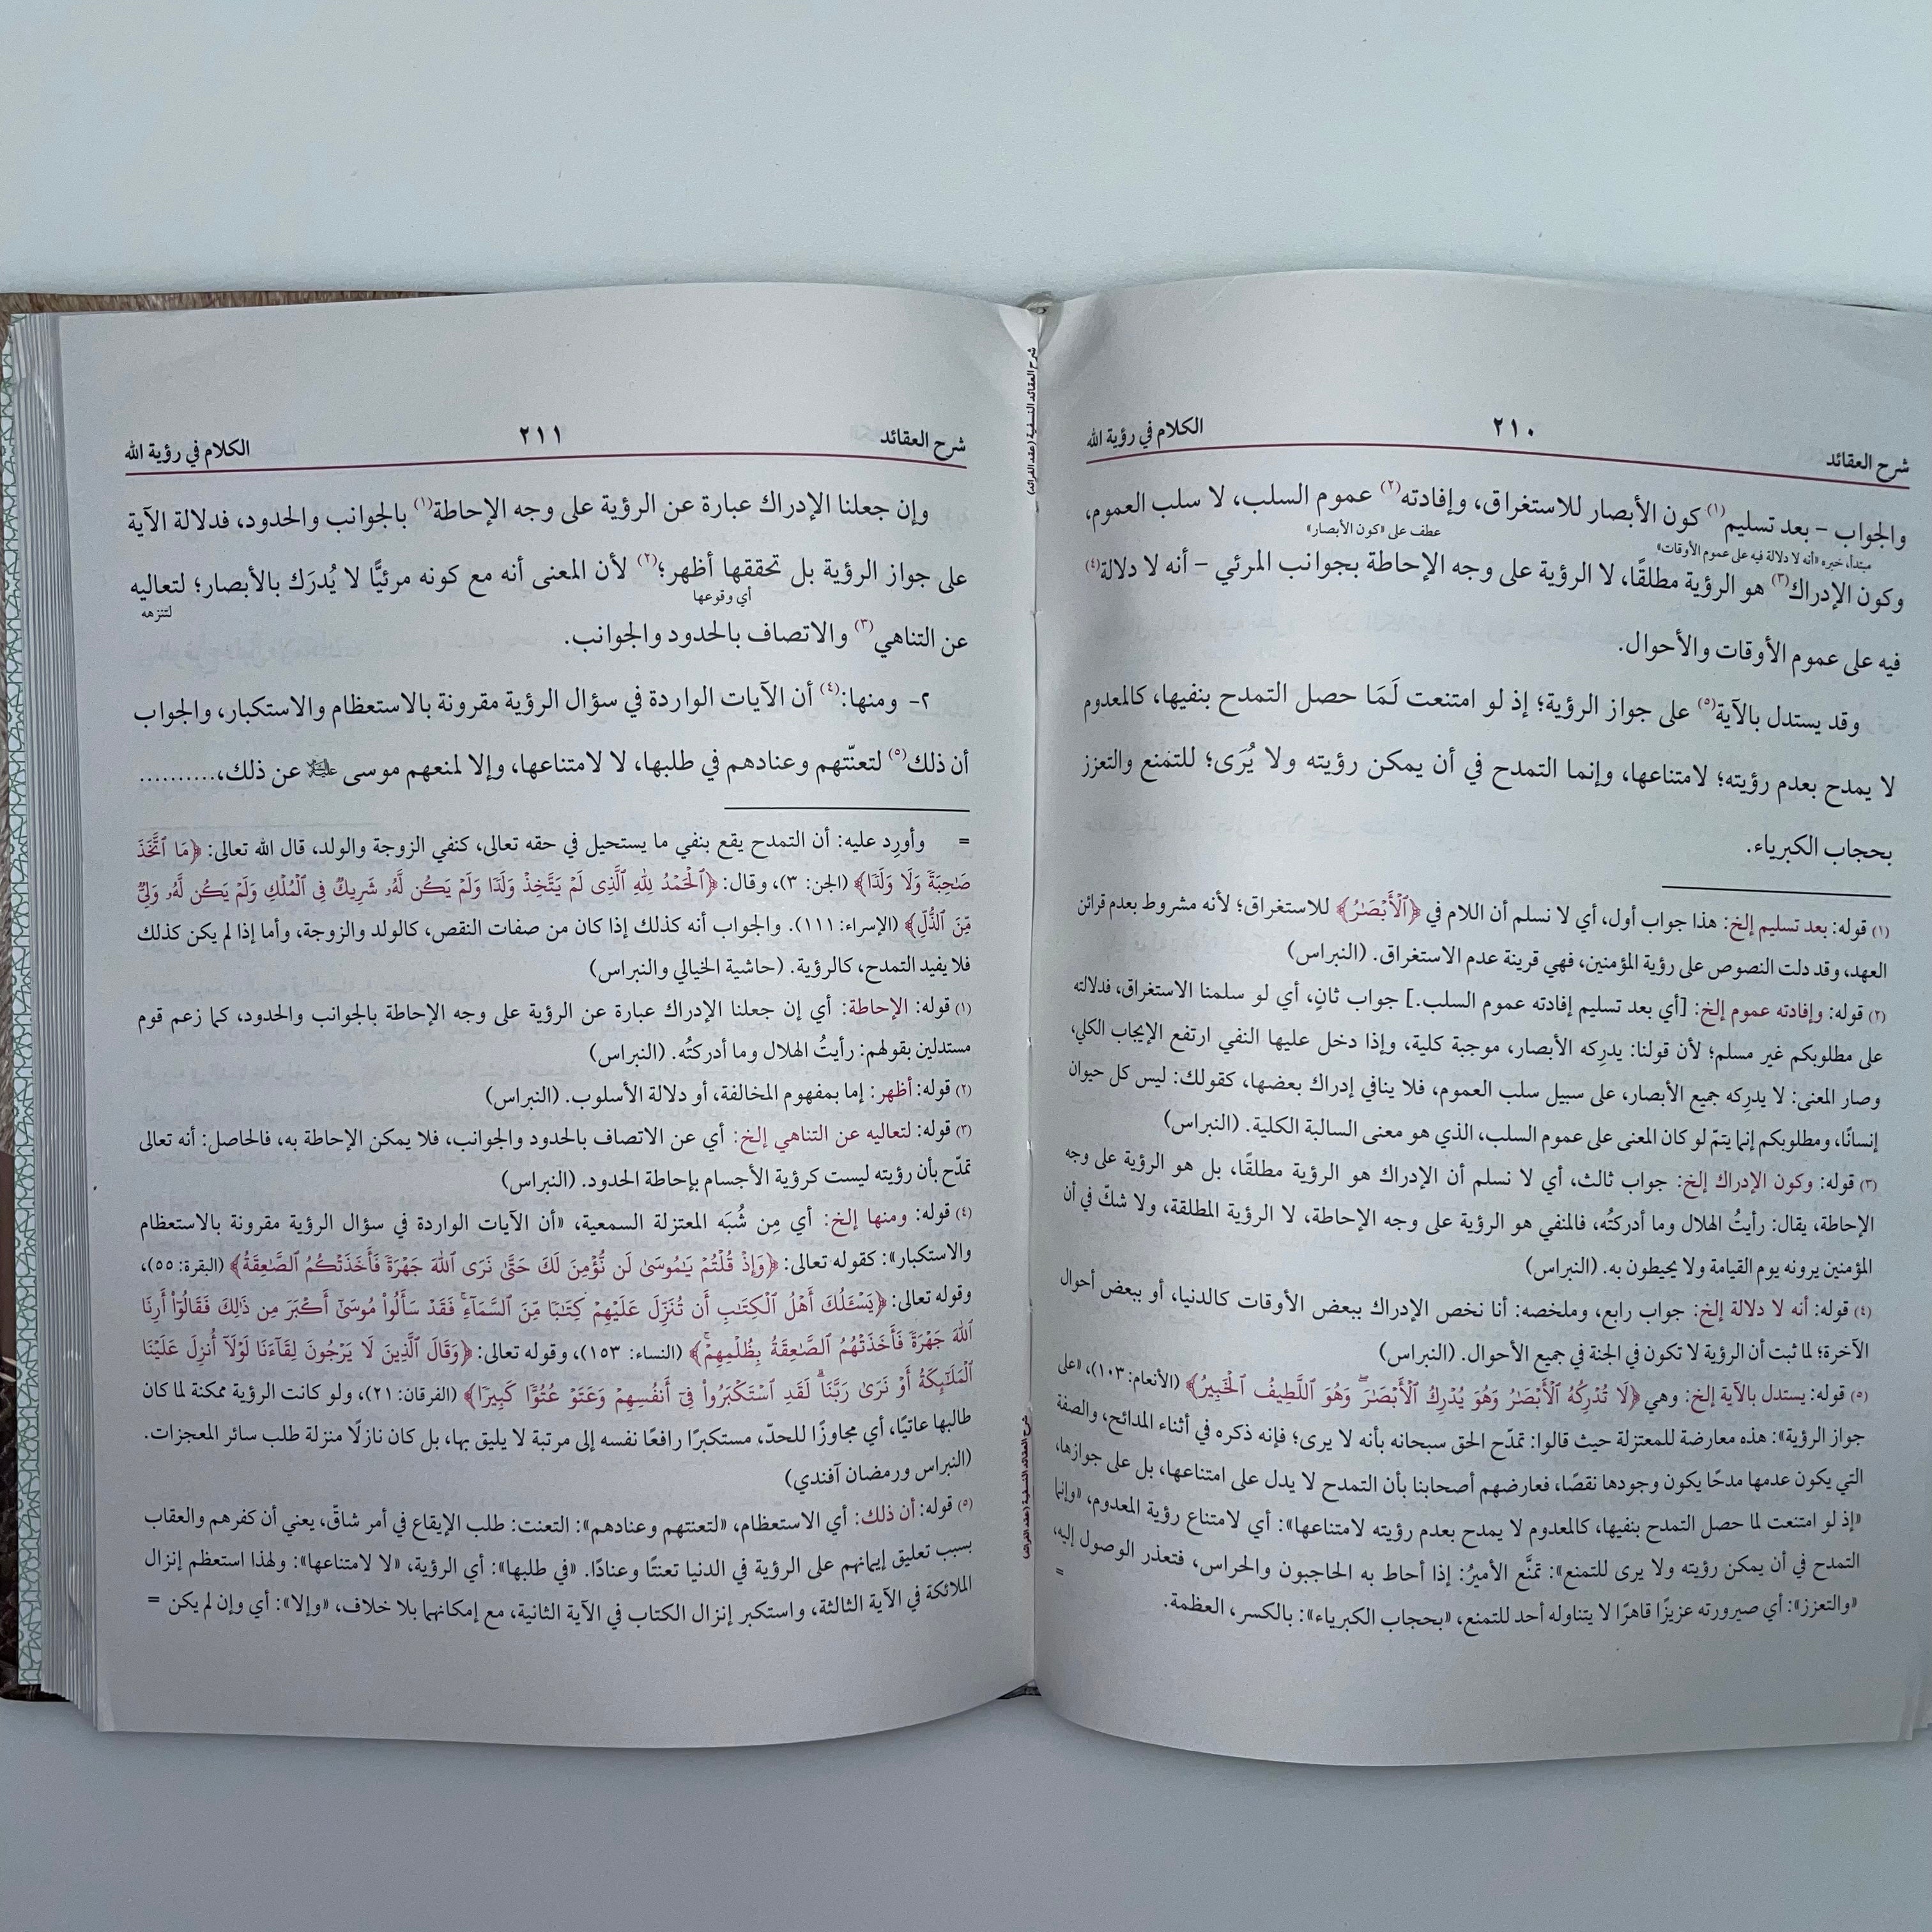 شرح العقائد ٢١٠ الكلام في رؤية الله
والجواب – بعد تسليم(١) كون الأبصار للاستغراق، وإفادته(٢) عموم السلب، لا سلب العموم،
مبتدأ، خبره «أنه لا دلالة فيه على عموم الأوقات» عطف على «كون الأبصار»
وكون الإدراك(٣) هو الرؤية مطلقًا، لا الرؤية على وجه الإحاطة بجوانب المرئي – أنه لا دلالة(٤)
فيه على عموم الأوقات والأحوال.
وقد يستدل بالآية(٥) على جواز الرؤية؛ إذ لو امتنعت لَمَا حصل التمدح بنفيها، كالمعدوم
لا يمدح بعدم رؤيته؛ لامتناعها، وإنما التمدح في أن يمكن رؤيته ولا يُرَى؛ للتمنع والتعزز
بحجاب الكبرياء.
(١) قوله: بعد تسليم إلخ: هذا جواب أول، أي لا نسلم أن اللام في ﴿ٱلْأَبْصَٰرُ﴾ للاستغراق؛ لأنه مشروط بعدم قرائن
العهد، وقد دلت النصوص على رؤية المؤمنين، فهي قرينة عدم الاستغراق. (النبراس)
(٢) قوله: وإفادته عموم إلخ: [أي بعد تسليم إفادته عموم السلب.] جواب ثانٍ، أي لو سلمنا الاستغراق، فدلالته
على مطلوبكم غير مسلم؛ لأن قولنا: يدرِكه الأبصار، موجبة كلية، وإذا دخل عليها النفي ارتفع الإيجاب الكلي،
وصار المعنى: لا يدرِكه جميع الأبصار، على سبيل سلب العموم، فلا ينافي إدراك بعضها، كقولك: ليس كل حيوان
إنسانًا، ومطلوبكم إنما يتمّ لو كان المعنى على عموم السلب، الذي هو معنى السالبة الكلية. (النبراس)
(٣) قوله: وكون الإدراك إلخ: جواب ثالث، أي لا نسلم أن الإدراك هو الرؤية مطلقًا، بل هو الرؤية على وجه
الإحاطة، يقال: رأيتُ الهلال وما أدركتُه، فالمنفي هو الرؤية على وجه الإحاطة، لا الرؤية المطلقة، ولا شكّ في أن
المؤمنين يرونه يوم القيامة ولا يحيطون به. (النبراس)
(٤) قوله: أنه لا دلالة إلخ: جواب رابع، وملخصه: أنا نخص الإدراك ببعض الأوقات كالدنيا، أو ببعض أحوال
الآخرة؛ لما ثبت أن الرؤية لا تكون في الجنة في جميع الأحوال. (النبراس)
(٥) قوله: يستدل بالآية إلخ: وهي ﴿لَا تُدْرِكُهُ ٱلْأَبْصَٰرُ وَهُوَ يُدْرِكُ ٱلْأَبْصَٰرَ ۖ وَهُوَ ٱللَّطِيفُ ٱلْخَبِيرُ﴾ (الأنعام: ١٠٣)، «على
جواز الرؤية»: هذه معارضة للمعتزلة حيث قالوا: تمدّح الحق سبحانه بأنه لا يرى؛ فإنه ذكره في أثناء المدائح، والصفة
التي يكون عدمها مدحًا يكون وجودها نقصًا، فعارضهم أصحابنا بأن التمدح لا يدل على امتناعها، بل على جوازها،
«إذ لو امتنعت لما حصل التمدح بنفيها، كالمعدوم لا يمدح بعدم رؤيته لامتناعها»: أي لامتناع رؤية المعدوم، «وإنما
التمدح في أن يمكن رؤيته ولا يرى للتمنع»: تمنَّع الأميرُ: إذا أحاط به الحاجبون والحراس، فتعذر الوصول إليه،
«والتعزز»: أي صيرورته عزيزًا قاهرًا لا يتناوله أحد للتمنع، «بحجاب الكبرياء»: بالكسر، العظمة. =
شرح العقائد النسفية (عقد الفرائد)
شرح العقائد النسفية (عقد الفرائد)
شرح العقائد ٢١١ الكلام في رؤية الله
وإن جعلنا الإدراك عبارة عن الرؤية على وجه الإحاطة(١) بالجوانب والحدود، فدلالة الآية
على جواز الرؤية بل تحققها أظهر؛(٢) لأن المعنى أنه مع كونه مرئيًّا لا يُدرَك بالأبصار؛ لتعاليه
أي وقوعها لتنزهه
عن التناهي(٣) والاتصاف بالحدود والجوانب.
٢- ومنها:(٤) أن الآيات الواردة في سؤال الرؤية مقرونة بالاستعظام والاستكبار، والجواب
أن ذلك(٥) لتعنّتهم وعنادهم في طلبها، لا لامتناعها، وإلا لمنعهم موسى عليه السلام عن ذلك،..........
= وأورِد عليه: أن التمدح يقع بنفي ما يستحيل في حقه تعالى، كنفي الزوجة والولد، قال الله تعالى: ﴿مَا ٱتَّخَذَ
صَٰحِبَةً وَلَا وَلَدًا﴾ (الجن: ٣)، وقال: ﴿ٱلْحَمْدُ لِلَّهِ ٱلَّذِى لَمْ يَتَّخِذْ وَلَدًا وَلَمْ يَكُن لَّهُۥ شَرِيكٌ فِى ٱلْمُلْكِ وَلَمْ يَكُن لَّهُۥ وَلِىٌّ
مِّنَ ٱلذُّلِّ﴾ (الإسراء: ١١١). والجواب أنه كذلك إذا كان من صفات النقص، كالولد والزوجة، وأما إذا لم يكن كذلك
فلا يفيد التمدح، كالرؤية. (حاشية الخيالي والنبراس)
(١) قوله: الإحاطة: أي إن جعلنا الإدراك عبارة عن الرؤية على وجه الإحاطة بالجوانب والحدود، كما زعم قوم
مستدلين بقولهم: رأيتُ الهلال وما أدركتُه. (النبراس)
(٢) قوله: أظهر: إما بمفهوم المخالفة، أو دلالة الأسلوب. (النبراس)
(٣) قوله: لتعاليه عن التناهي إلخ: أي عن الاتصاف بالحدود والجوانب، فلا يمكن الإحاطة به، فالحاصل: أنه تعالى
تمدّح بأن رؤيته ليست كرؤية الأجسام بإحاطة الحدود. (النبراس)
(٤) قوله: ومنها إلخ: أي مِن شُبَه المعتزلة السمعية، «أن الآيات الواردة في سؤال الرؤية مقرونة بالاستعظام
والاستكبار»: كقوله تعالى: ﴿وَإِذْ قُلْتُمْ يَٰمُوسَىٰ لَن نُّؤْمِنَ لَكَ حَتَّىٰ نَرَى ٱللَّهَ جَهْرَةً فَأَخَذَتْكُمُ ٱلصَّٰعِقَةُ﴾ (البقرة: ٥٥)،
وقوله تعالى: ﴿يَسْـَٔلُكَ أَهْلُ ٱلْكِتَٰبِ أَن تُنَزِّلَ عَلَيْهِمْ كِتَٰبًا مِّنَ ٱلسَّمَآءِ ۚ فَقَدْ سَأَلُوا۟ مُوسَىٰٓ أَكْبَرَ مِن ذَٰلِكَ فَقَالُوٓا۟ أَرِنَا
ٱللَّهَ جَهْرَةً فَأَخَذَتْهُمُ ٱلصَّٰعِقَةُ بِظُلْمِهِمْ ۚ﴾ (النساء: ١٥٣)، وقوله تعالى: ﴿وَقَالَ ٱلَّذِينَ لَا يَرْجُونَ لِقَآءَنَا لَوْلَآ أُنزِلَ عَلَيْنَا
ٱلْمَلَٰٓئِكَةُ أَوْ نَرَىٰ رَبَّنَا ۗ لَقَدِ ٱسْتَكْبَرُوا۟ فِىٓ أَنفُسِهِمْ وَعَتَوْ عُتُوًّا كَبِيرًا﴾ (الفرقان: ٢١)، ولو كانت الرؤية ممكنة لما كان
طالبها عاتيًا، أي مجاوزًا للحدّ، مستكبرًا رافعًا نفسه إلى مرتبة لا يليق بها، بل كان نازلًا منزلة طلب سائر المعجزات.
(النبراس ورمضان آفندي)
(٥) قوله: أن ذلك: أي الاستعظام، «لتعنتهم وعنادهم»: التعنت: طلب الإيقاع في أمر شاقّ، يعني أن كفرهم والعقاب
بسبب تعليق إيمانهم على الرؤية في الدنيا تعنتًا وعنادًا. «في طلبها»: أي الرؤية، «لا لامتناعها»: ولهذا استعظم إنزال
الملائكة في الآية الثالثة، واستكبر إنزال الكتاب في الآية الثانية، مع إمكانهما بلا خلاف، «وإلا»: أي وإن لم يكن =